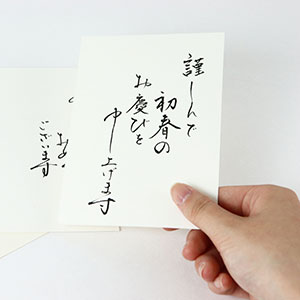 謹しんで
初春の
お慶びを
申し上げます
ございます